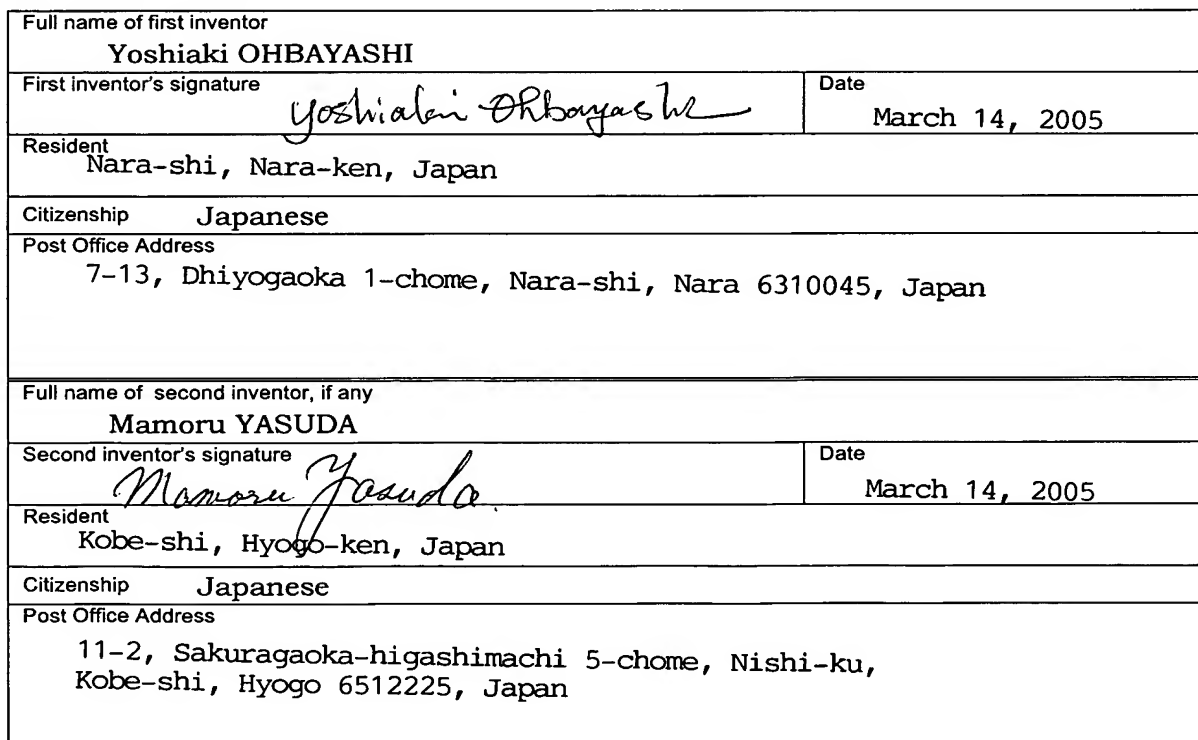 Full name of first inventor
Yoshiaki OHBAYASHI
First inventor's signature
Yoshiaki Ohbayashi
Date
March 14, 2005
Resident
Nara-shi, Nara-ken, Japan
Citizenship Japanese
Post Office Address
7-13, Dhiyogaoka 1-chome, Nara-shi, Nara 6310045, Japan
Full name of second inventor, if any
Mamoru YASUDA
Second inventor's signature
Mamoru Yasuda.
Date
March 14, 2005
Resident
Kobe-shi, Hyogo-ken, Japan
Citizenship Japanese
Post Office Address
11-2, Sakuragaoka-higashimachi 5-chome, Nishi-ku,
Kobe-shi, Hyogo 6512225, Japan